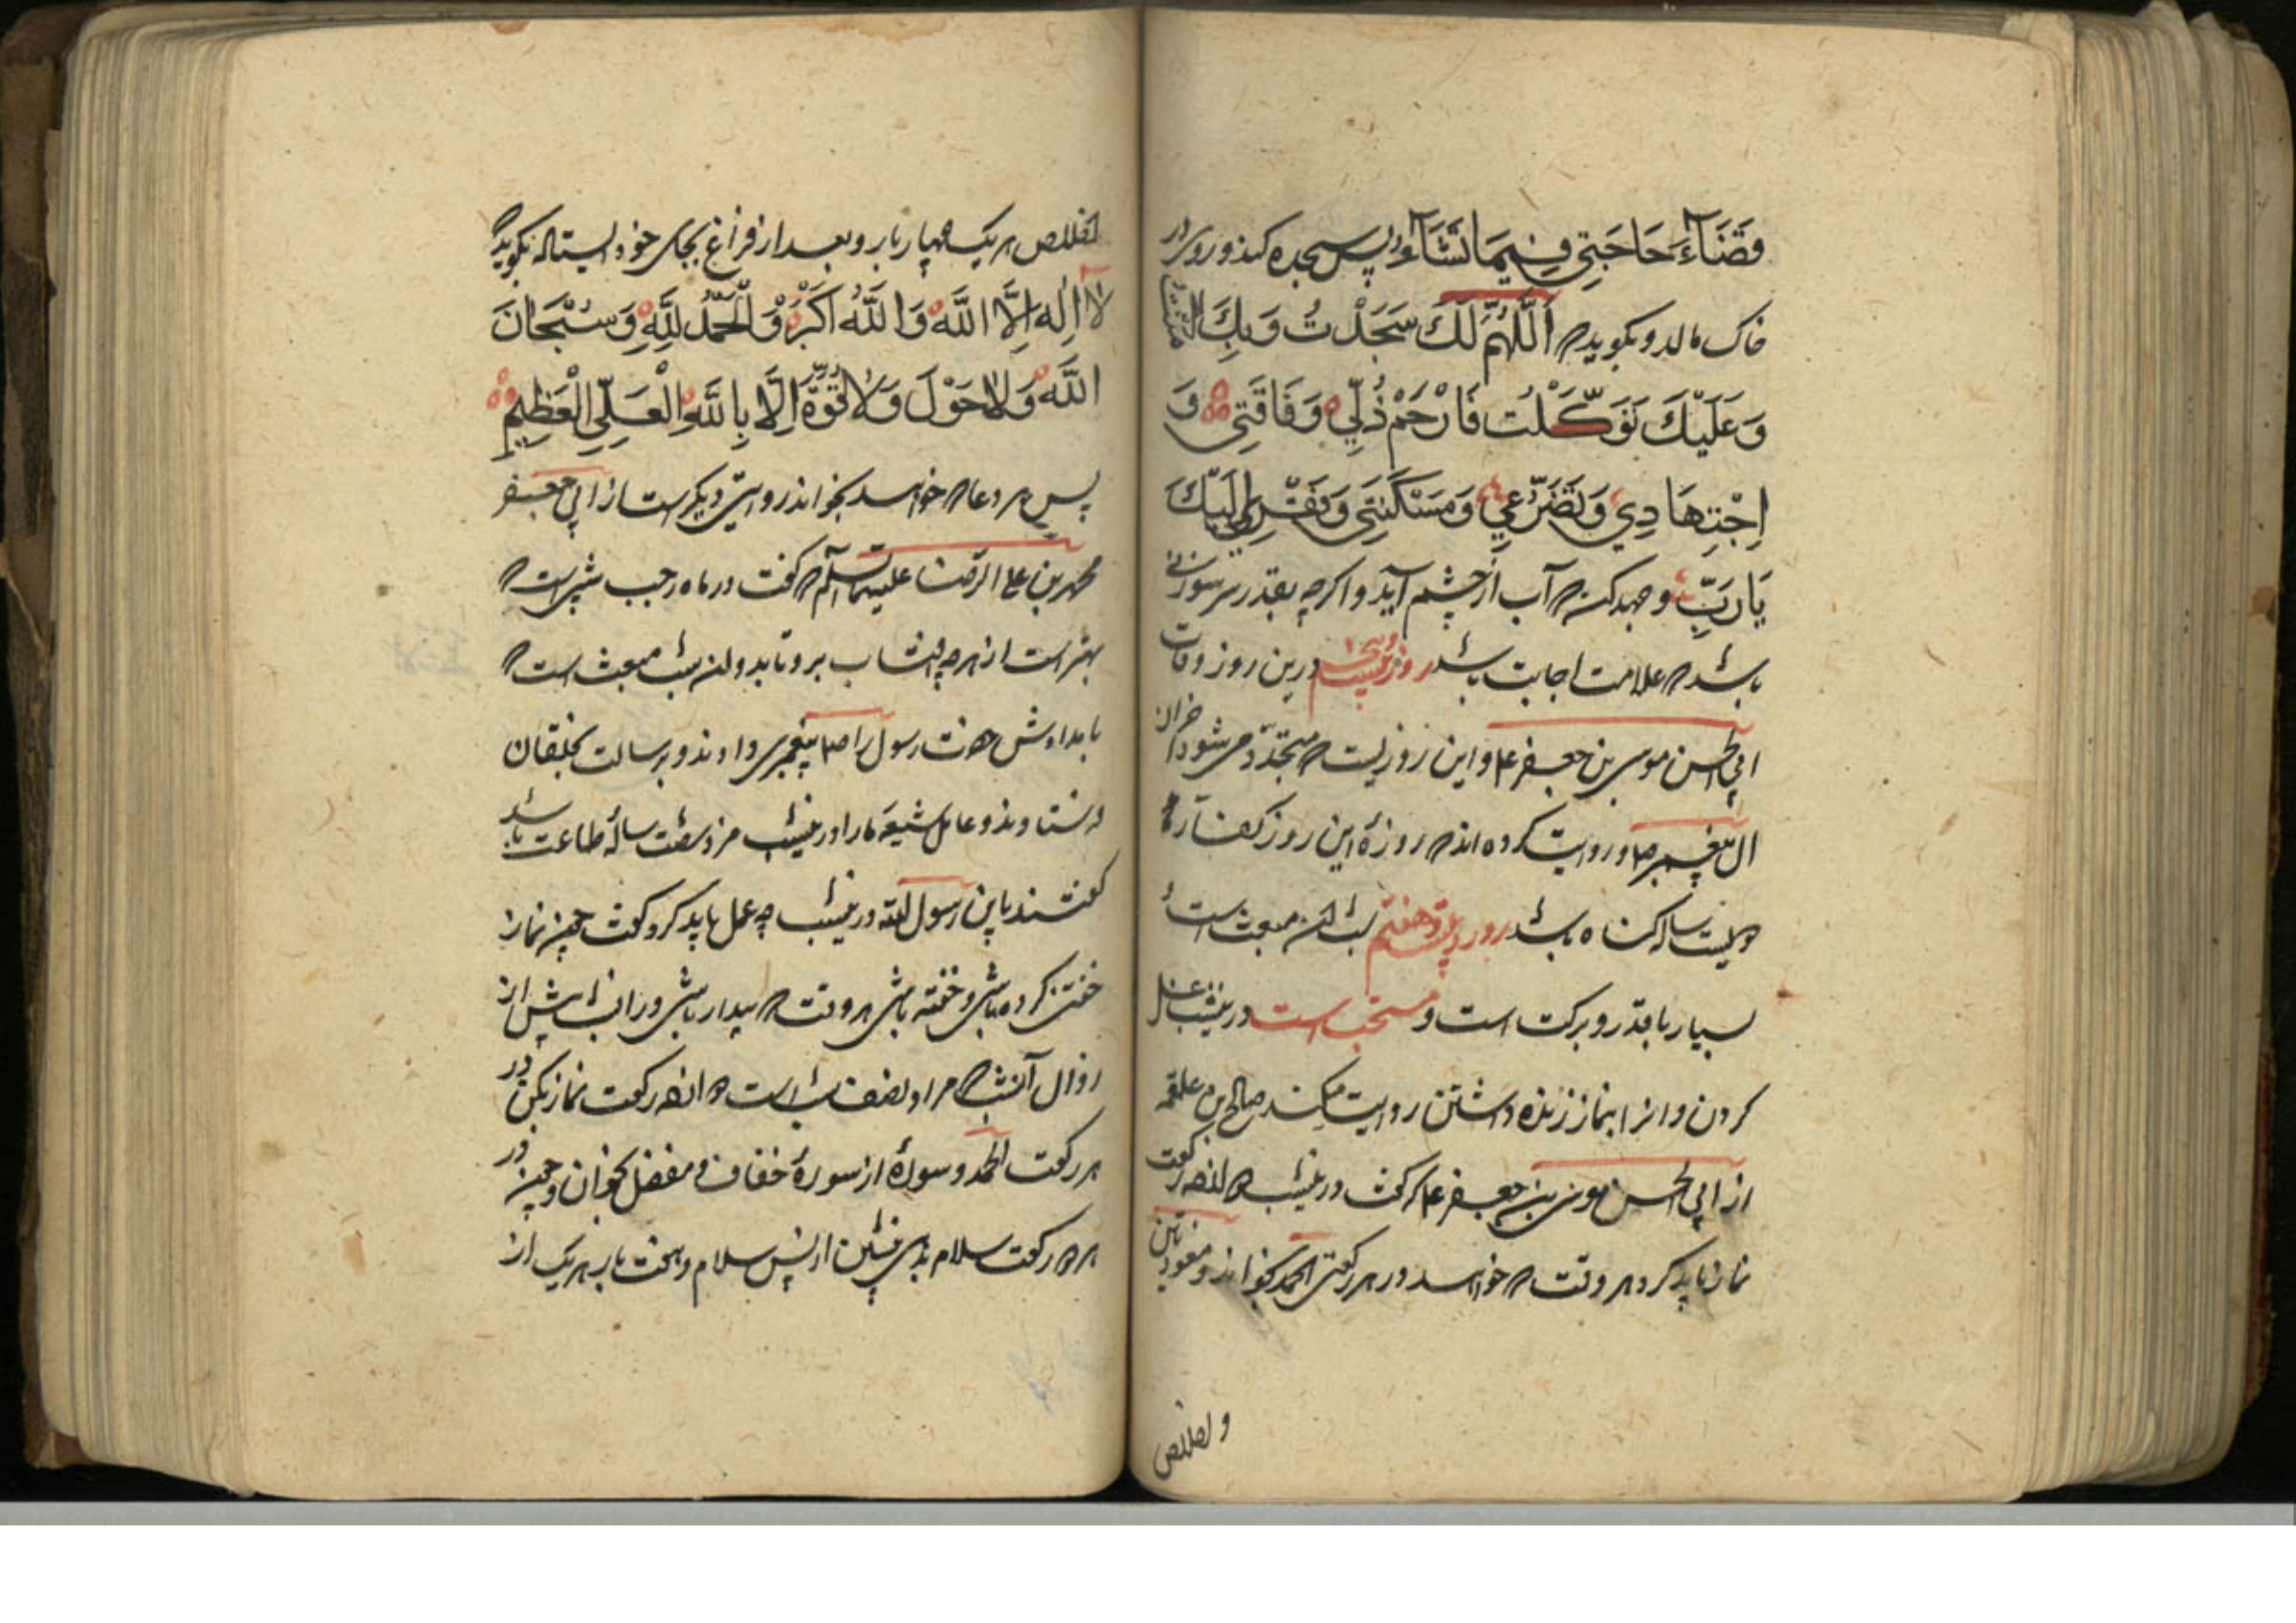 وَقَضَآءَ حَاجَتِي فِيمَا تَشَآءُ و پس سجده کند و روی در
خاک مالد و بکوید که اَللّٰهُمَّ لَكَ سَجَدْتُ وَبِكَ اٰمَنْتُ
وَعَلَيْكَ تَوَكَّلْتُ فَارْحَمْ ذُلِّي وَفَاقَتِي وَ
اِجْتِهَادِي وَتَضَرُّعِي وَمَسْكَنَتِي وَفَقْرِي اِلَيْكَ
يَا رَبِّ و جهد کند که آب از چشم آید و اکرچه بقدر سر سوزنی
باشد که علامت اجابت باشد روز بیست و پنجم درین روز وفات
ابی الحسن موسی بن جعفر ع و این روزیست که متجدد می شود احزان
ال پیغمبر ص و روایت کرده اند که روزهٔ این روز کفارهٔ
دویست ساله کناه باشد روز بیست و هفتم شب این مبعث است
بسیار با قدر و برکت است و مستحب است درین شب غسل
کردن و انرا بنماز زنده داشتن روایت میکند صالح بن علقمه
از ابی الحسن موسی بن جعفر ع که کفت درین شب دوانزده رکعت
نماز باید کرد هر وقت که خواهد در هر رکعتی الحمد بخواند و معوذتین
و اخلاص
اخلاص هر یک چهار بار و بعد از فراغ بجای خود ایستاده بکوید که
لَا اِلٰهَ اِلَّا اللّٰهُ وَاللّٰهُ اَكْبَرُ وَالْحَمْدُ لِلّٰهِ وَسُبْحَانَ
اللّٰهِ وَلَا حَوْلَ وَلَا قُوَّةَ اِلَّا بِاللّٰهِ الْعَلِيِّ الْعَظِيمِ
پس هر دعا که خواهد بخواند روایتی دیکر است از ابی جعفر
محمد بن علی الرضا علیهما السلام که کفت در ماه رجب شبی است که
بهتر است از هرچه افتاب برو تابد و ان شب مبعث است که
بامدادش حضرت رسول را ص پیغمبری دادند و برسالت بخلقان
فرستادند و عامل شیعهٔ ما را درین شب مزد شصت ساله طاعت باشد
کفتند یا بن رسول الله درین شب چه عمل باید کرد کفت چون نماز
خفتن کرده باشی و خفته باشی هر وقت که بیدار باشی در ان شب پیش از
زوال آن شب که مراد نصف شب است دوانزده رکعت نماز بکن در
هر رکعت الحمد و سورهٔ از سورهٔ خفاف و مفصل بخوان و چون در
هر دو رکعت سلام بدهی بنشین از پس سلام و هفت بار هر یک از